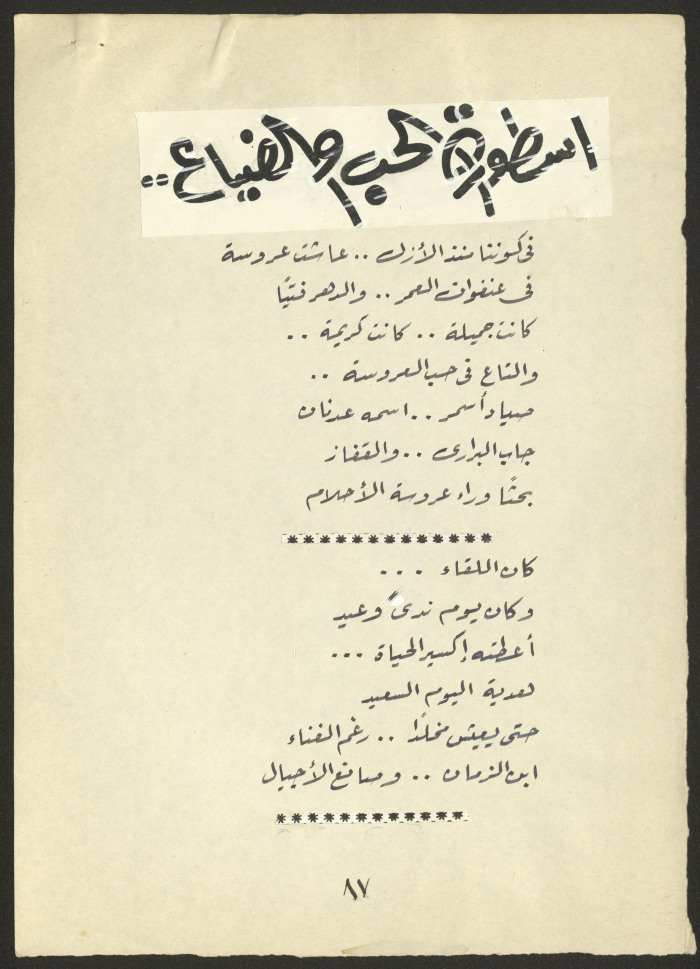 اسطورة الحب والضياع ..
فى كوننا منذ الأزل .. عاشت عروسة
فى عنفوان العمر .. والدهر فتيًا
كانت جميلة .. كانت كريمة ..
والتاع فى حب العروسة ..
صياد أسمر .. اسمه عدنان
جاب البرارى .. والقفاز
بحثًا وراء عروسة الأحلام
*************
كان اللقاء ...
وكان يوم ندىً وعيد
أعطته إكسير الحياة ...
هدية اليوم السعيد
حتى يعيش مخلدًا .. رغم الفناء
ابن الزمان .. وصانع الأجيال
************
٨٧